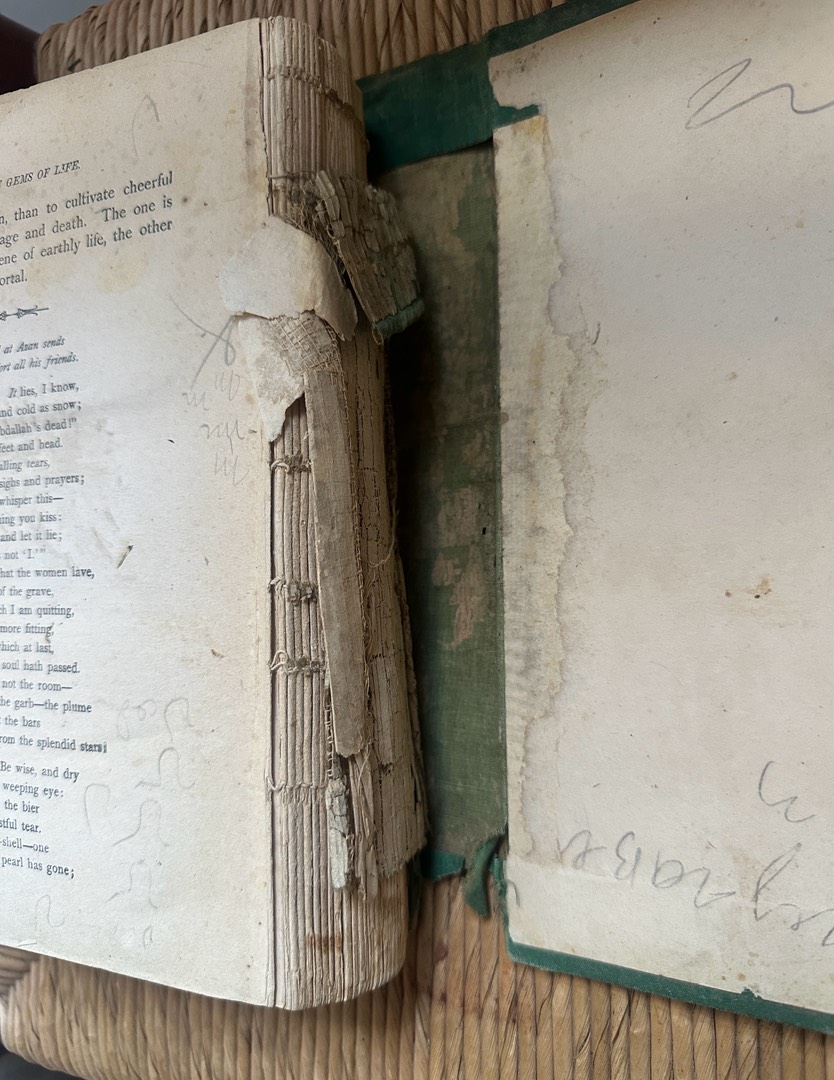 GEMS OF LIFE.
n, than to cultivate cheerful
age and death. The one is
ene of earthly life, the other
ortal.
at Azan sends
ort all his friends.
It lies, I know,
nd cold as snow;
bdallah's dead!"
feet and head.
alling tears,
sighs and prayers;
whisper this—
ing you kiss:
and let it lie;
not 'I.'"
hat the women lave,
of the grave,
ch I am quitting,
more fitting,
which at last,
soul hath passed.
not the room—
he garb—the plume
the bars
rom the splendid stars!
Be wise, and dry
weeping eye:
the bier
stful tear.
-shell—one
pearl has gone;